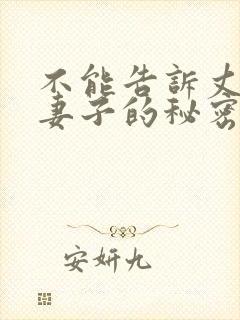 不能告訴丈
妻子的秘密
安妍九